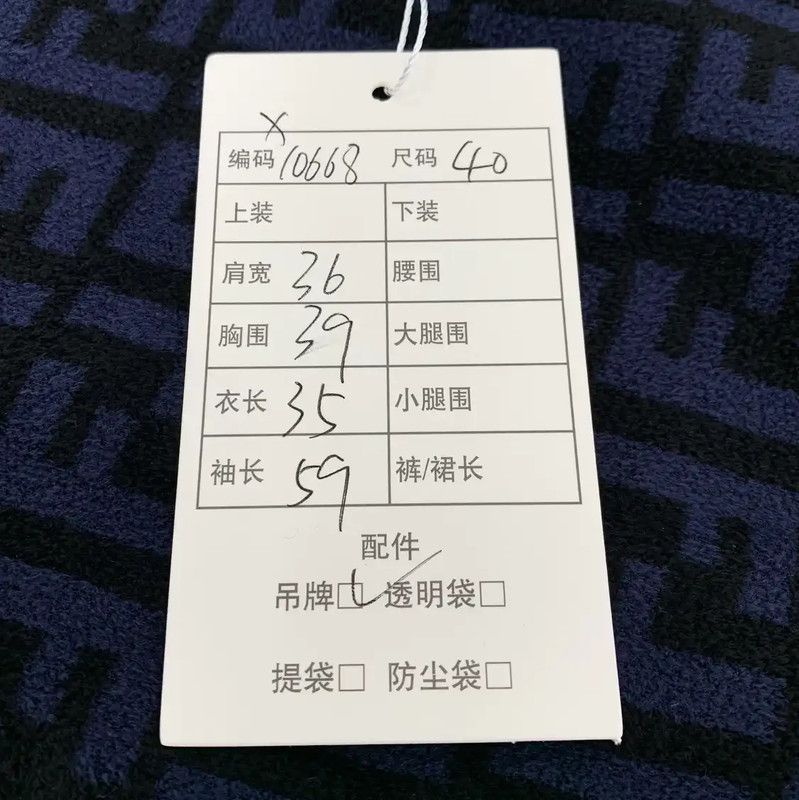 X
编码 10668 尺码 40
上装 下装
肩宽 36 腰围
胸围 39 大腿围
衣长 35 小腿围
袖长 59 裤/裙长
配件
吊牌 透明袋
提袋 防尘袋